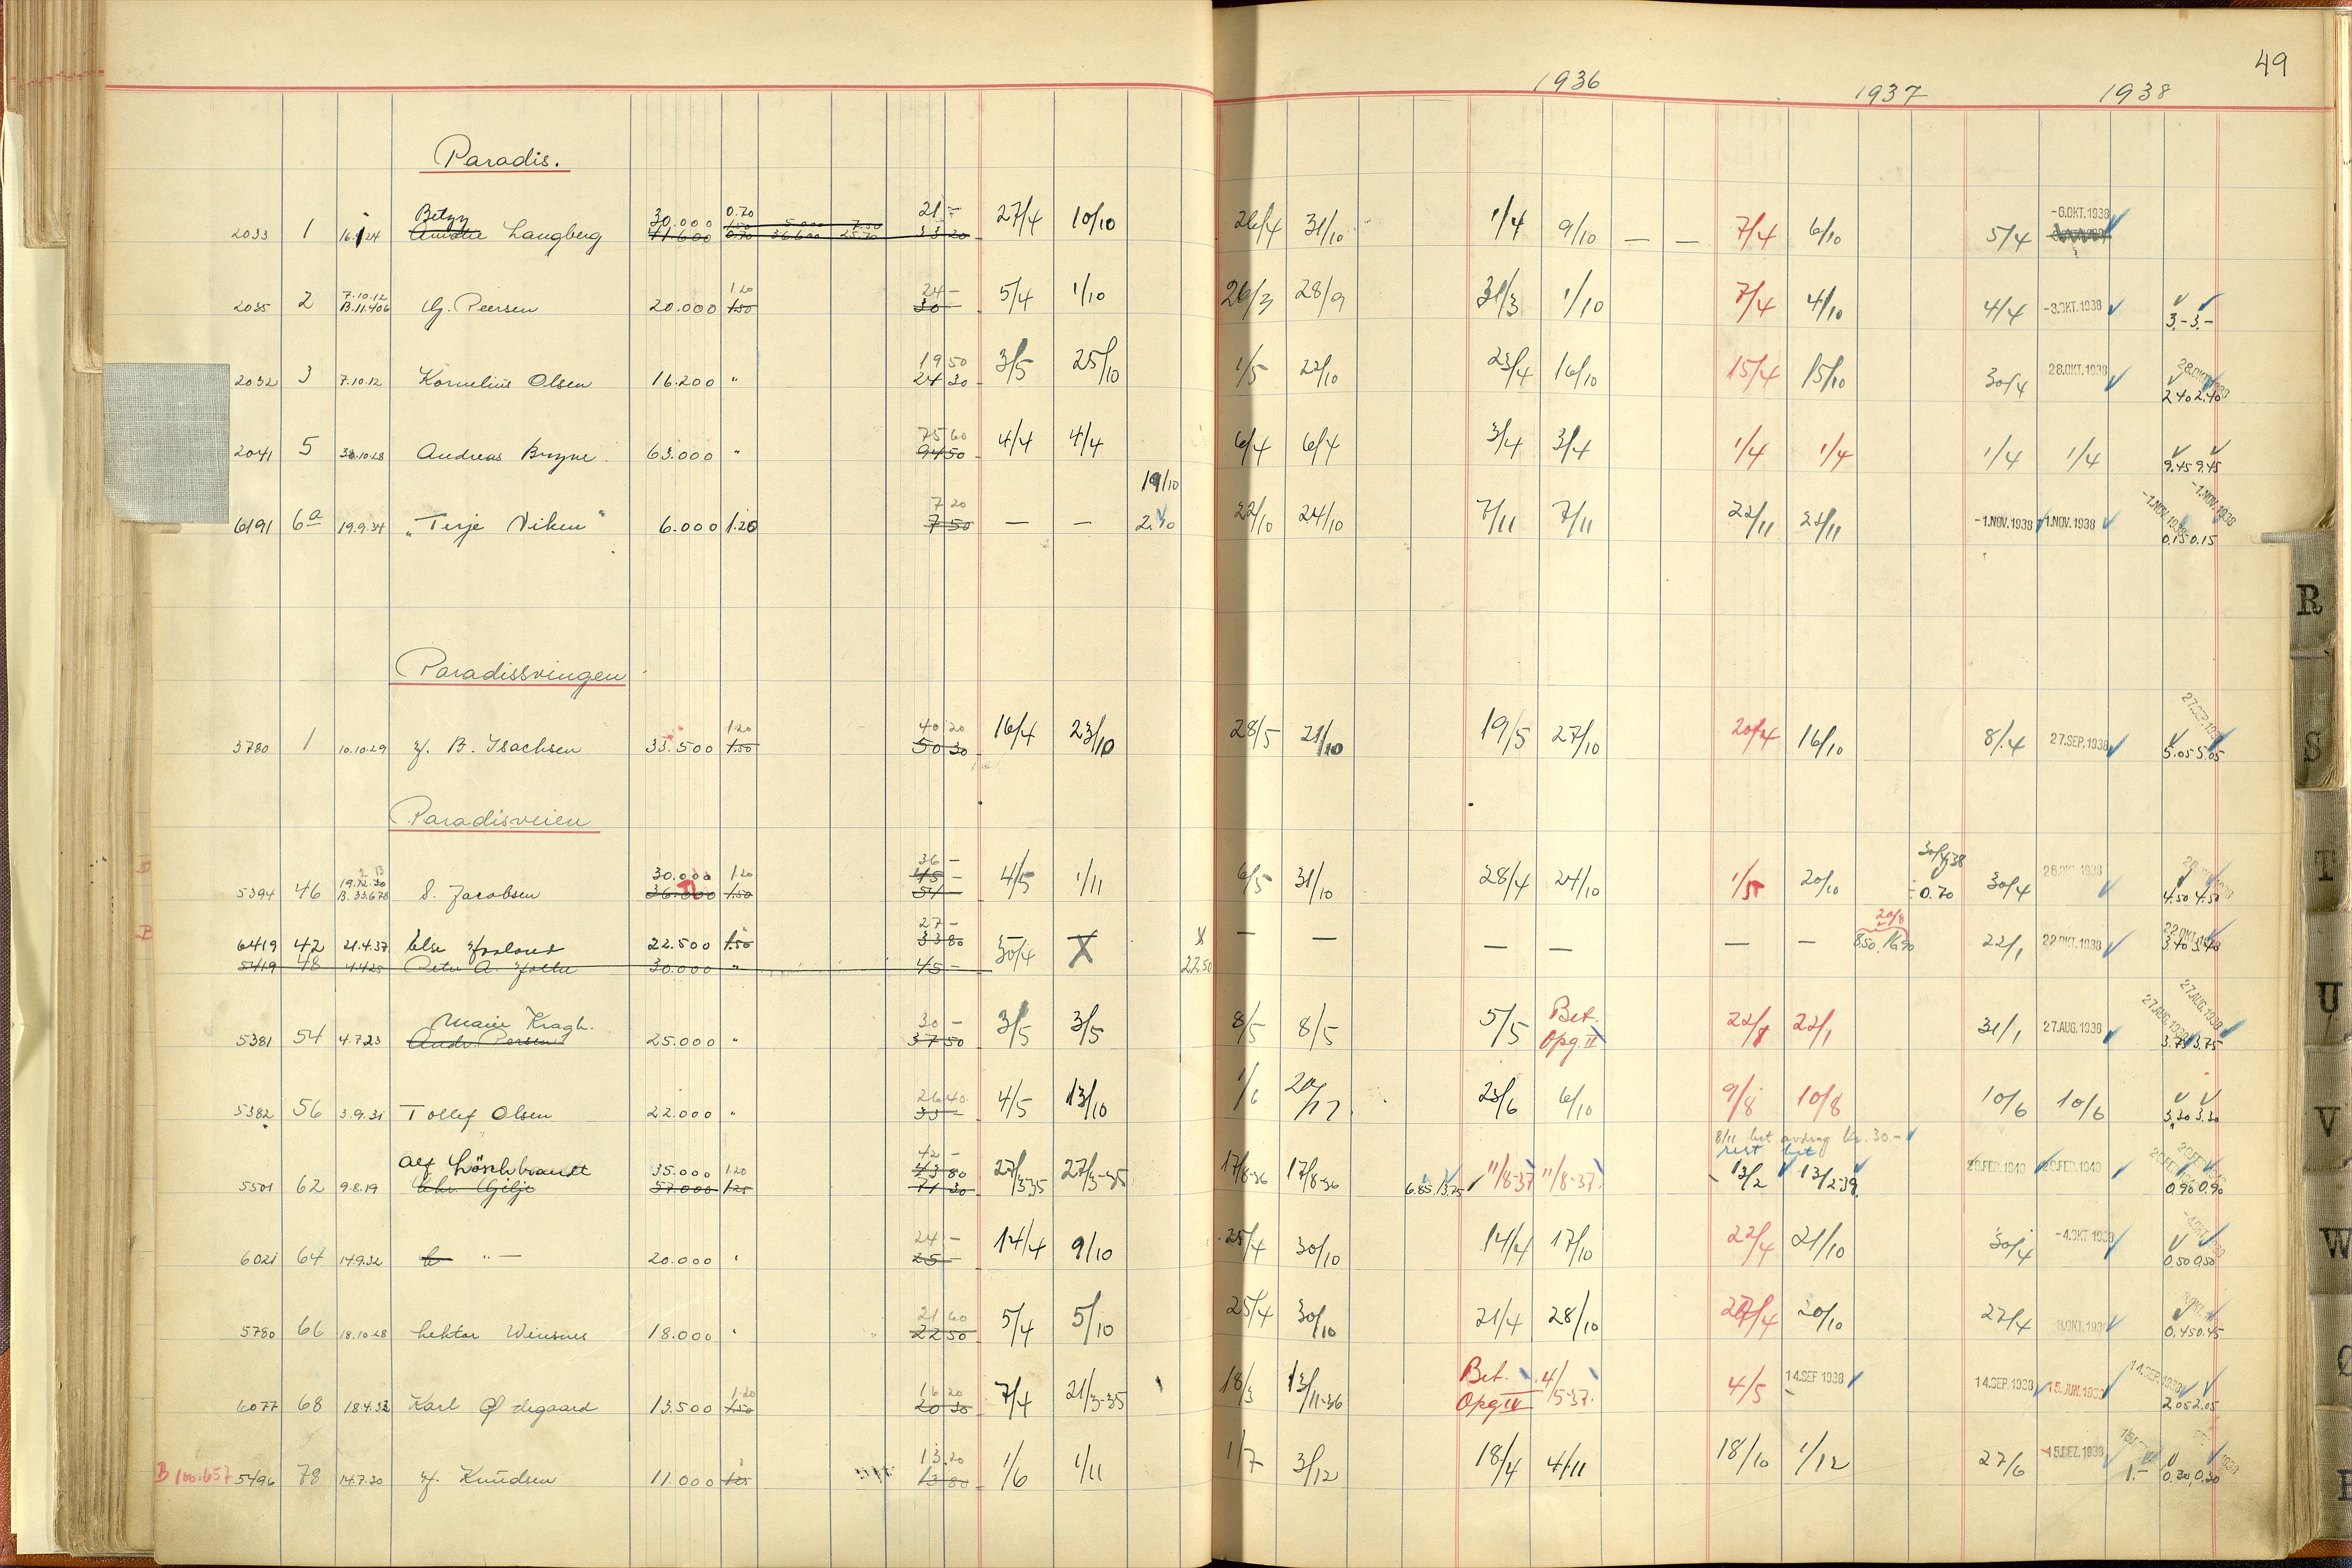 49
1936 1937 1938
Paradis.
Betzy 30.000 0.70 21 -
2033 1 16.1.24 Langberg 41.600 0.70 36.600 25.70 33 20 27/4 10/10 26/4 31/10 1/4 9/10 — — 7/4 6/10 5/4 -6.OKT.1938
7.10.12 1.20 24 -
2035 2 B.11.406 G. Peersen 20.000 1.50 30 - 5/4 1/10 26/3 28/9 31/3 1/10 7/4 4/10 4/4 -3.OKT.1938 3.- 3.-
19 50
2032 3 7.10.12 Kornelius Olsen 16.200 " 24 30 3/5 25/10 1/5 22/10 23/4 16/10 15/4 15/10 30/4 28.OKT.1938 28.OKT.1938 2.40 2.40
75 60
2041 5 10.28 Andreas Bryne 63.000 " 94 50 4/4 4/4 6/4 6/4 3/4 3/4 1/4 1/4 1/4 1/4 9.45 9.45
7 20 19/10
6191 6a 19.9.34 „Terje Viken" 6.000 1.20 7 50 — — 2.10 22/10 24/10 7/11 7/11 22/11 22/11 -1.NOV.1938 -1.NOV.1938 -1.NOV.1938 -1.NOV.1938 0.15 0.15
Paradissvingen
1.20 40 20
3780 1 10.10.29 B. Isachsen 33.500 1.50 50 30 16/4 23/10 28/5 21/10 19/5 27/10 20/4 16/10 8/4 27.SEP.1938 27.SEP.1938 5.05 5.05
Paradisveien
30.000 1.20 36 - 45 - 30/4 38
5394 46 19.12.30 B.33.678 S. Jacobsen 36.000 1.50 54 - 4/5 1/11 6/5 31/10 28/4 24/10 1/5 20/10 0.70 30/4 4.50 4.50
27 - 20/8
6419 42 21.4.37 Else 22.500 1.50 33 80 — — — — — — — 8.50 16.90 22/1 22.OKT.1938 22.OKT.1938 3.40 3.40
5419 48 4.4.25 30.000 " 45 - 30/4 X 22.50
Marie Kragh. 30 - Bet.
5381 54 4.7.23 Andr. 25.000 " 37 50 3/5 3/5 8/5 8/5 5/5 Opg. II 22/1 22/1 31/1 27.AUG.1938 27.AUG.1938 27.AUG.1938 3.75 3.75
26 40
5382 56 3.9.31 Tollef Olsen 22.000 " 33 - 4/5 13/10 1/6 23/6 6/10 9/8 10/8 10/6 10/6 3.30 3.30
8/11 bet avdrag kr. 30.-
rest bet
Alf Löschbrandt 35.000 1.20 42 - 43 80
5501 62 9.8.19 Chr. Gilje 57.000 1.25 71 30 27/3-35 27/3-35 17/8-36 17/8-36 6.85 13.75 11/8-37 11/8-37 13/2 13/2-39 0.90 0.90
24 -
6021 64 14.9.32 " — 20.000 " 25 - 14/4 9/10 25/4 30/10 14/4 17/10 22/4 21/10 30/4 -4.OKT.1938 0.50 0.50
21 60
5780 66 18.10.28 18.000 " 22 50 5/4 5/10 25/4 30/10 21/4 28/10 20/10 22/4 8.OKT.193 0.45 0.45
1.20 16 20 Bet. 4/
6077 68 18.4.32 Karl Ødegaard 13.500 1.50 20 30 7/4 21/3-35 18/3 13/11-36 Opg IV 5-37. 4/5 14.SEP.1938 14.SEP.1938 15.JUN.1939 14.SEP.1938 2.05 2.05
13.20
B 100.657 5496 78 14.7.30 Knudsen 11.000 1.25 13 80 1/6 1/11 1/7 3/12 18/4 4/11 18/10 1/12 27/6 15.DEZ.1938 1.- 0.30 0.30
R
S
T
U
V
W